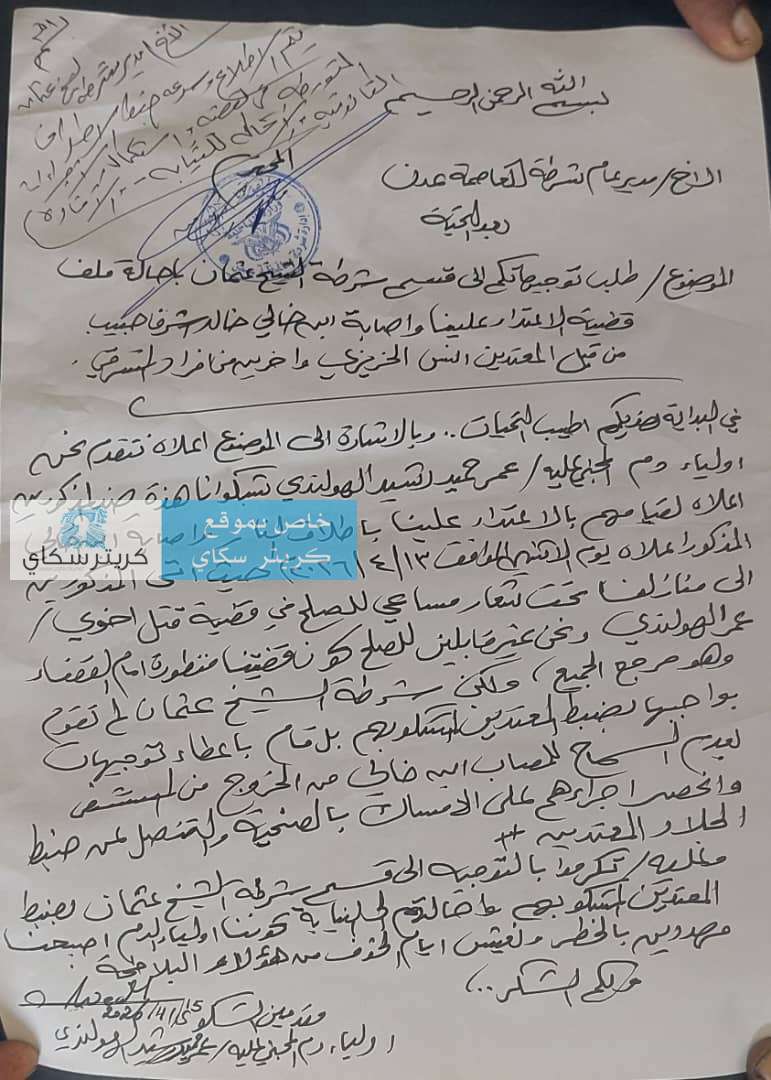 الأخ مدير شرطة الشيخ عثمان المحترم
يتم الاطلاع وسرعة ضبط الأطراف
المتورطة في القضية واستكمال الإجراءات
القانونية والإحالة للنيابة
بسم الله الرحمن الرحيم
الاخ/ مدير عام شرطة العاصمة عدن المحترم
بعد التحية
الموضوع/ طلب توجيهاتكم الى قسم شرطة الشيخ عثمان باحالة ملف
قضية الاعتداء علينا واصابة ابن خالي خالد شرف حبيب
من قبل المعتدين انس الخريزي واخرين من افراد
في البداية نهديكم اطيب التحيات.. وبالاشارة الى الموضوع اعلاه نتقدم نحن
اولياء دم المجني عليه/ عمر حميد رشيد الهولندي بشكوانا هذه ضد المذكورين
اعلاه لقيامهم بالاعتداء علينا باطلاق
المذكور اعلاه يوم الاثنين الموافق ١٣/٤/٢٠٢٦م حيث اتى المذكورين
الى منازلنا تحت شعار مساعي للصلح في قضية قتل اخوي/
عمر الهولندي ونحن غير قابلين للصلح كون قضيتنا منظورة امام القضاء
وهو مرجع الجميع، ولكن شرطة الشيخ عثمان لم تقوم
بواجبها بضبط المعتدين المشكو بهم بل قام باعطاء توجيهات
بعدم السماح للمصاب ابن خالي من الخروج من المستشفى
وانحصر اجراءهم على الامساك بالضحية والتنصل عن ضبط
الجلاد المعتدين
وعليه/ تكرموا بالتوجيه الى قسم شرطة الشيخ عثمان بضبط
المعتدين المشكو بهم واحالتهم الى النيابة كوننا اولياء الدم اصبحنا
مهددين بالخطر ونعيش ايام الخوف من هؤلاء البلاطجة.
ولكم الشكر..
مقدمين الشكوى 15/4/2026
اولياء دم المجني عليه/ عمر حميد رشيد الهولندي
خاص بموقع
كريتر سكاي
كريتر سكاي